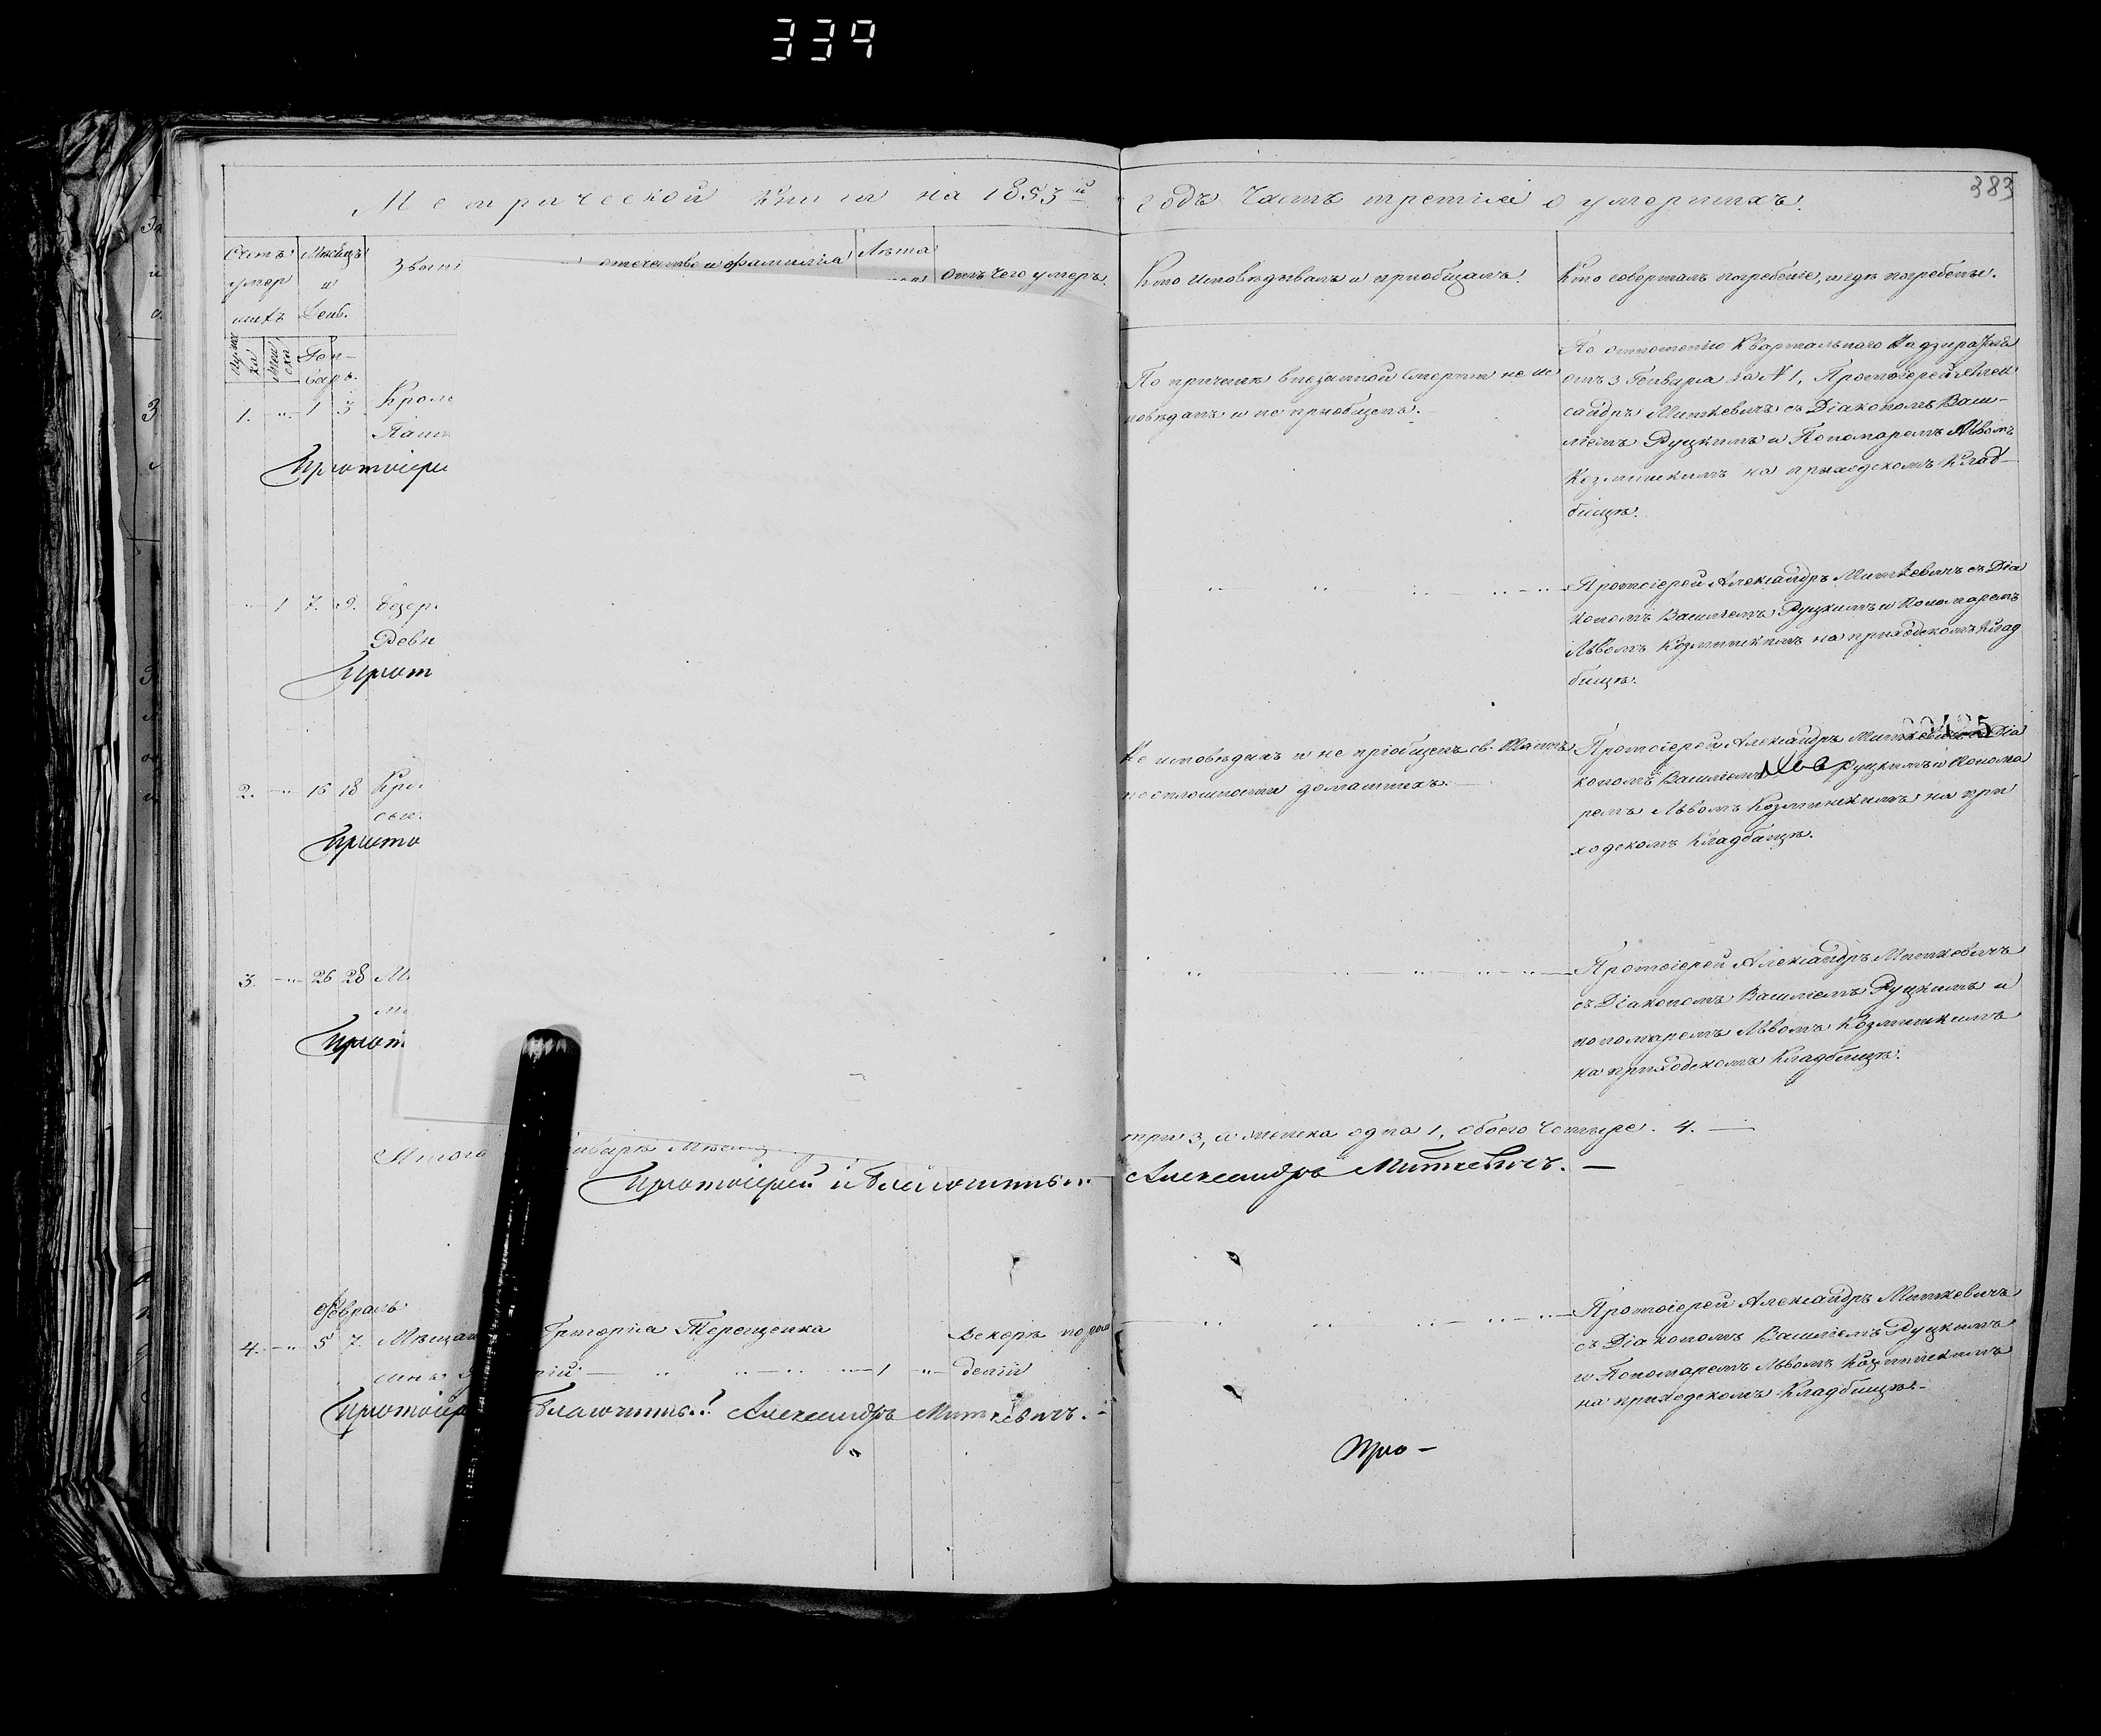 339
383
Метрической Книги на 1853й годъ Часть третія о умершихъ.
Счетъ умер шихъ
Мѣсяцъ и День.
отечество и фамилія
Лѣта
Отъ чего умеръ.
Кто исповѣдывалъ и пріобщалъ.
Кто совершалъ погребеніе, и гдѣ погребены.
Ген-
варь.
1. 1 3
Протоіере
По причинѣ внезапной смерти не ис
повѣданъ и не пріобщенъ.
По отношенію Квартального Надзирателя
отъ 3 Генваря за N 1, Протоіерей Алек
сандръ Миткевичъ съ Діакономъ Васи-
ліемъ Руцкимъ и Пономаремъ Львомъ
Козминскимъ на приходскомъ Клад-
бищѣ.
1 7. 9.
Прот
Протоіерей Александръ Миткевичъ съ Діа
кономъ Василіемъ Руцкимъ и Пономаремъ
Львомъ Козминскимъ на приходскомъ Клад
бищѣ.
2. 16 18
Прото
Не исповѣданъ и не пріобщенъ св. Таинъ
по оплошности домашнихъ.
Протоіерей Александръ Миткевичъ съ Діа
кономъ Василіемъ Руцкимъ и Понома
ремъ Львомъ Козминскимъ на при
ходскомъ Кладбищѣ.
3. 26 28 М
Прот
Протоіерей Александръ Миткевичъ
съ Діакономъ Василіемъ Руцкимъ и
пономаремъ Львомъ Козминскимъ
на приходскомъ Кладбищѣ.
Итого
три 3, а женска одна 1, обоего четыре. 4.
Протоіерей и Благочинный Александръ Миткевичъ.
Февраль
4. 5 7. Мѣщан Григорія Терещенка
сынъ 1
Вскорѣ по рож
деніи
Протоіер Благочинный Александръ Миткевичъ.
Протоіерей Александръ Миткевичъ
съ Діакономъ Василіемъ Руцкимъ
и Пономаремъ Львомъ Козминскимъ
на приходскомъ Кладбищѣ.
Про-